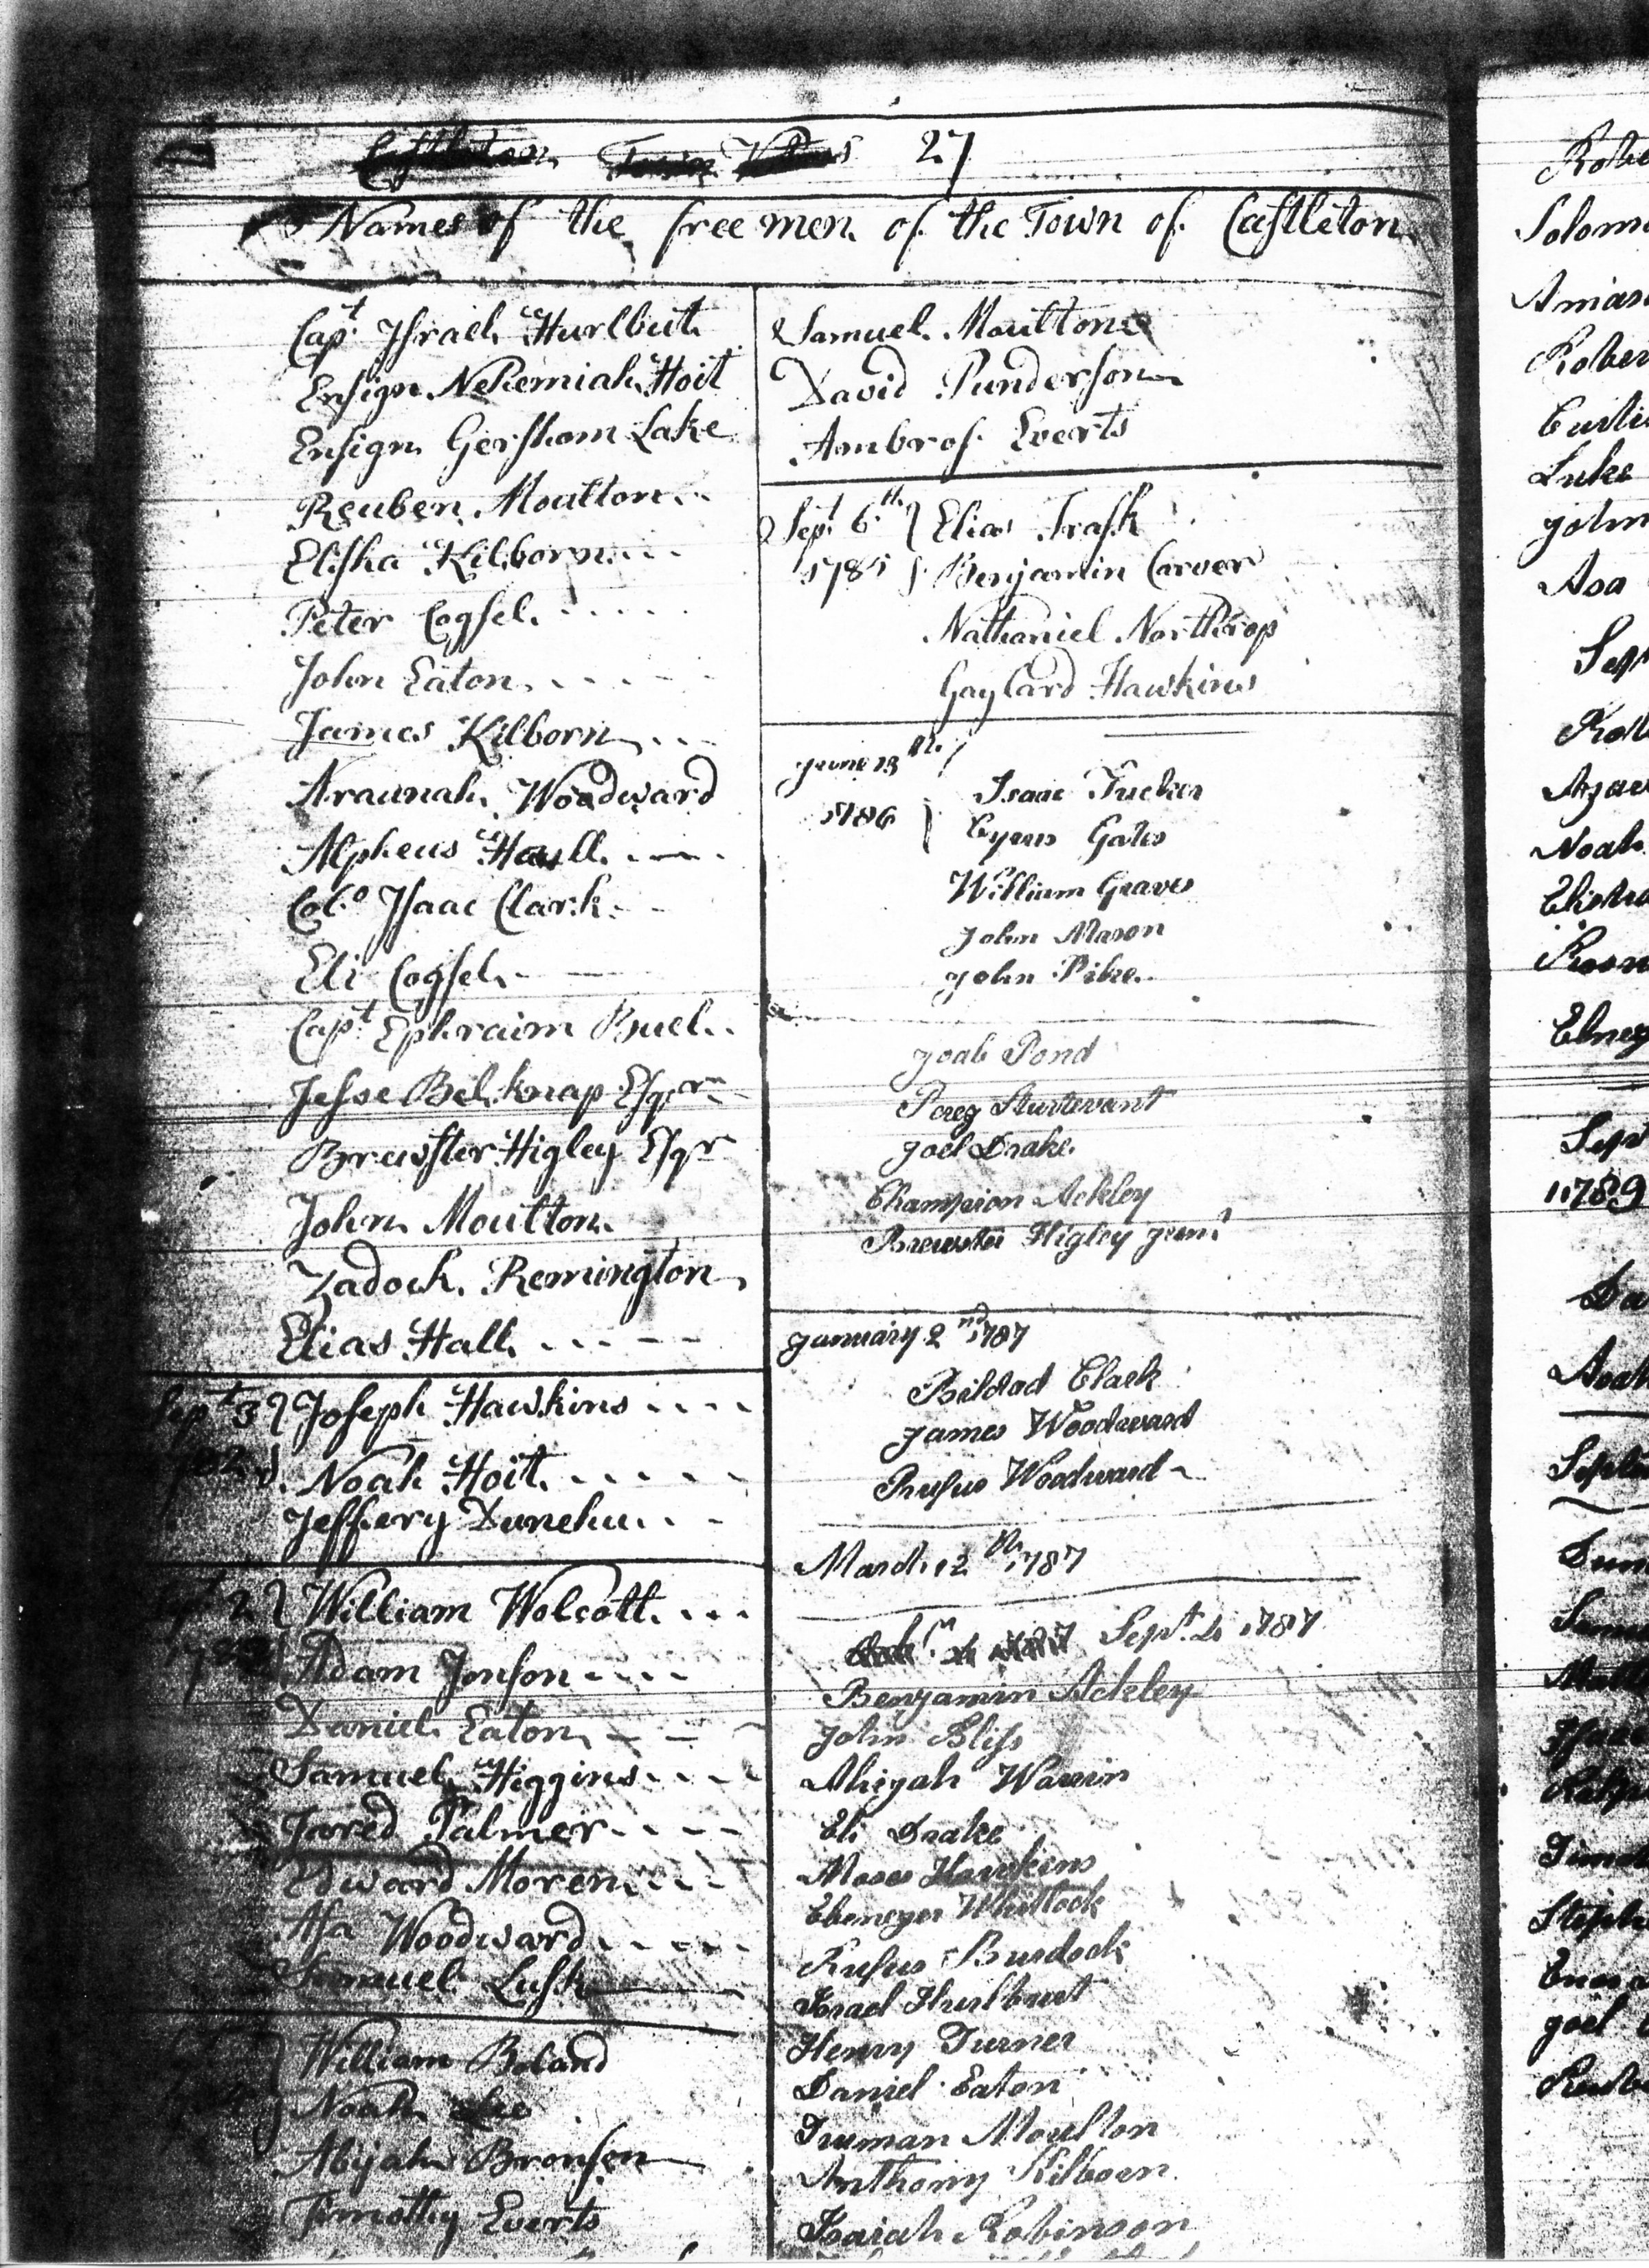 27
Names of the freemen of the Town of Castleton
Capt. Israel Hurlbut
Ensign Nehemiah Hoit
Ensign Gershom Lake
Reuben Moulton
Elisha Kilborn
Peter Cogsel
John Eaton
James Kilborn
Araunah Woodward
Alpheus Hall
Colo Isaac Clark
Eli Cogsel
Capt Ephraim Buel
Jesse Belknap Esqr
Brewster Higley Esqr
John Moulton
Zadock Remington
Elias Hall
Sept 3 Joseph Hawkins
Noah Hoit
Jeffery
Sept 2 William Wolcott
Adam Jonson
Daniel Eaton
Samuel Higgins
Jared Palmer
Edward Moren
Asa Woodward
Samuel Lusk
William Boland
Noah Lee
Abijah Bronson
Timothy Everts
Samuel Moulton
David Punderson
Ambros Everts
Sept 6th Elias Trask
1785 Benjamin Carver
Nathaniel Northrop
Gaylard Hawkins
June 13th
1786 Isaac Tucker
Cyrus Gates
William Graves
John Mason
John Pike
Joab Pond
Perez Sturtevant
Joel Drake
Champion Ackley
Brewster Higley junr
January 2nd 1787
Bildad Clark
James Woodward
Rufus Woodward
March 12th 1787
Sept. 4 1787
Benjamin Ackley
John Bliss
Ahijah Warrin
Eli Drake
Moses Hawkins
Ebenezer Whitlock
Rufus Burdock
Israel Hurlburt
Henry Turner
Daniel Eaton
Truman Moulton
Anthony Kilborn
Isaiah Robinson
Sept
Noah
Sept
1789